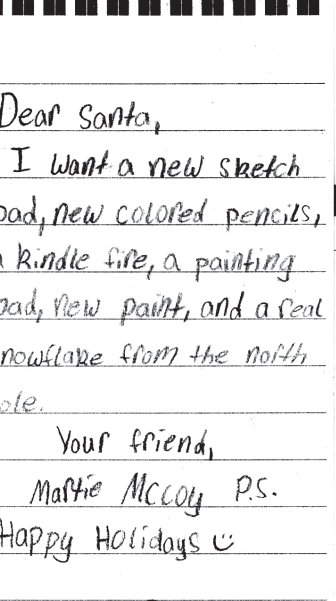 Dear Santa,
I want a new sketch
pad, new colored pencils,
a kindle fire, a painting
pad, new paint, and a real
snowflake from the north
pole.
Your friend,
Martie McCoy P.S.
Happy Holidays